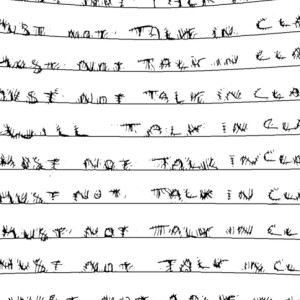 UST NOT TALK IN CLA
MUST NOT TALK IN CLA
MUST NOT TALK IN CLA
WILL TALK IN CLA
MUST NOT TALK IN CLA
MUST NOT TALK IN CLA
MUST NOT TALK IN CLA
MUST NOT TALK IN CLA